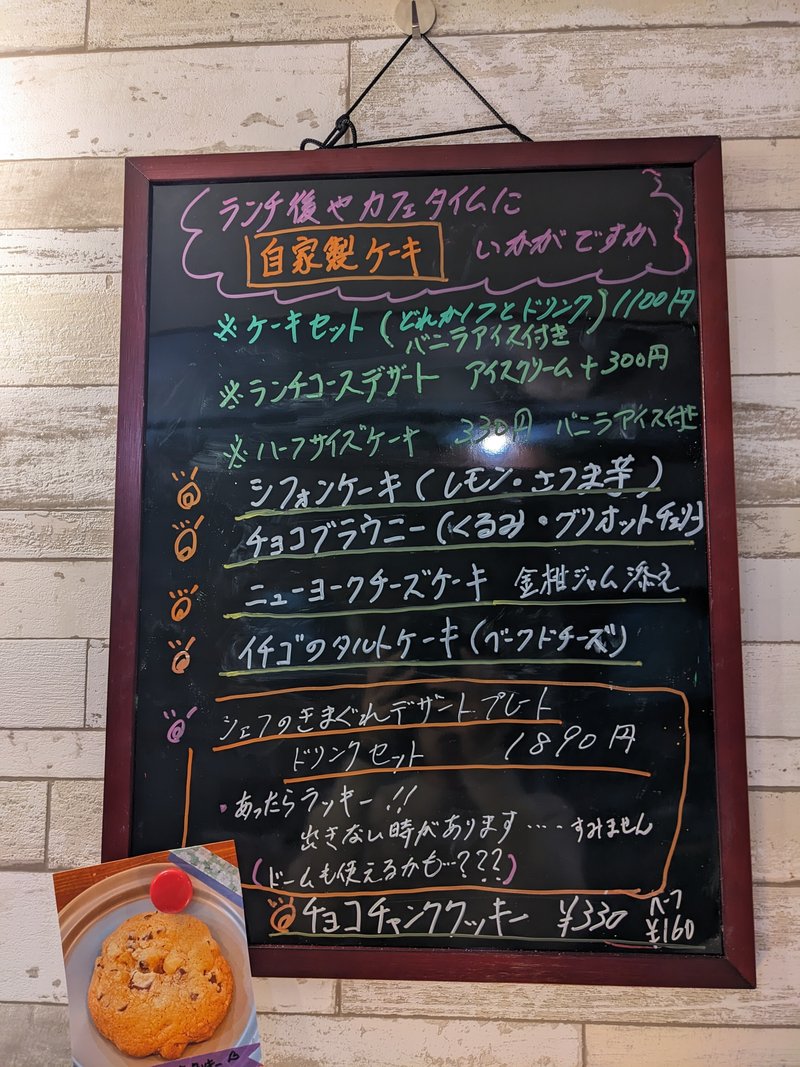 ランチ後やカフェタイムに
自家製ケーキ いかがですか
※ケーキセット(どれか1つとドリンク)1100円
バニラアイス付き
※ランチコースデザート アイスクリーム+300円
※ハーフサイズケーキ 330円 バニラアイス付き
シフォンケーキ(レモン・さつま芋)
チョコブラウニー(くるみ・グリオットチェリー
ニューヨークチーズケーキ 金柑ジャム添え
イチゴのタルトケーキ(ベークドチーズ)
シェフのきまぐれデザートプレート
ドリンクセット 1890円
・あったらラッキー!!
出きない時があります・・・・すみません
(ドームも使えるかも…???)
チョコチャンククッキー ¥330 ハーフ ¥160